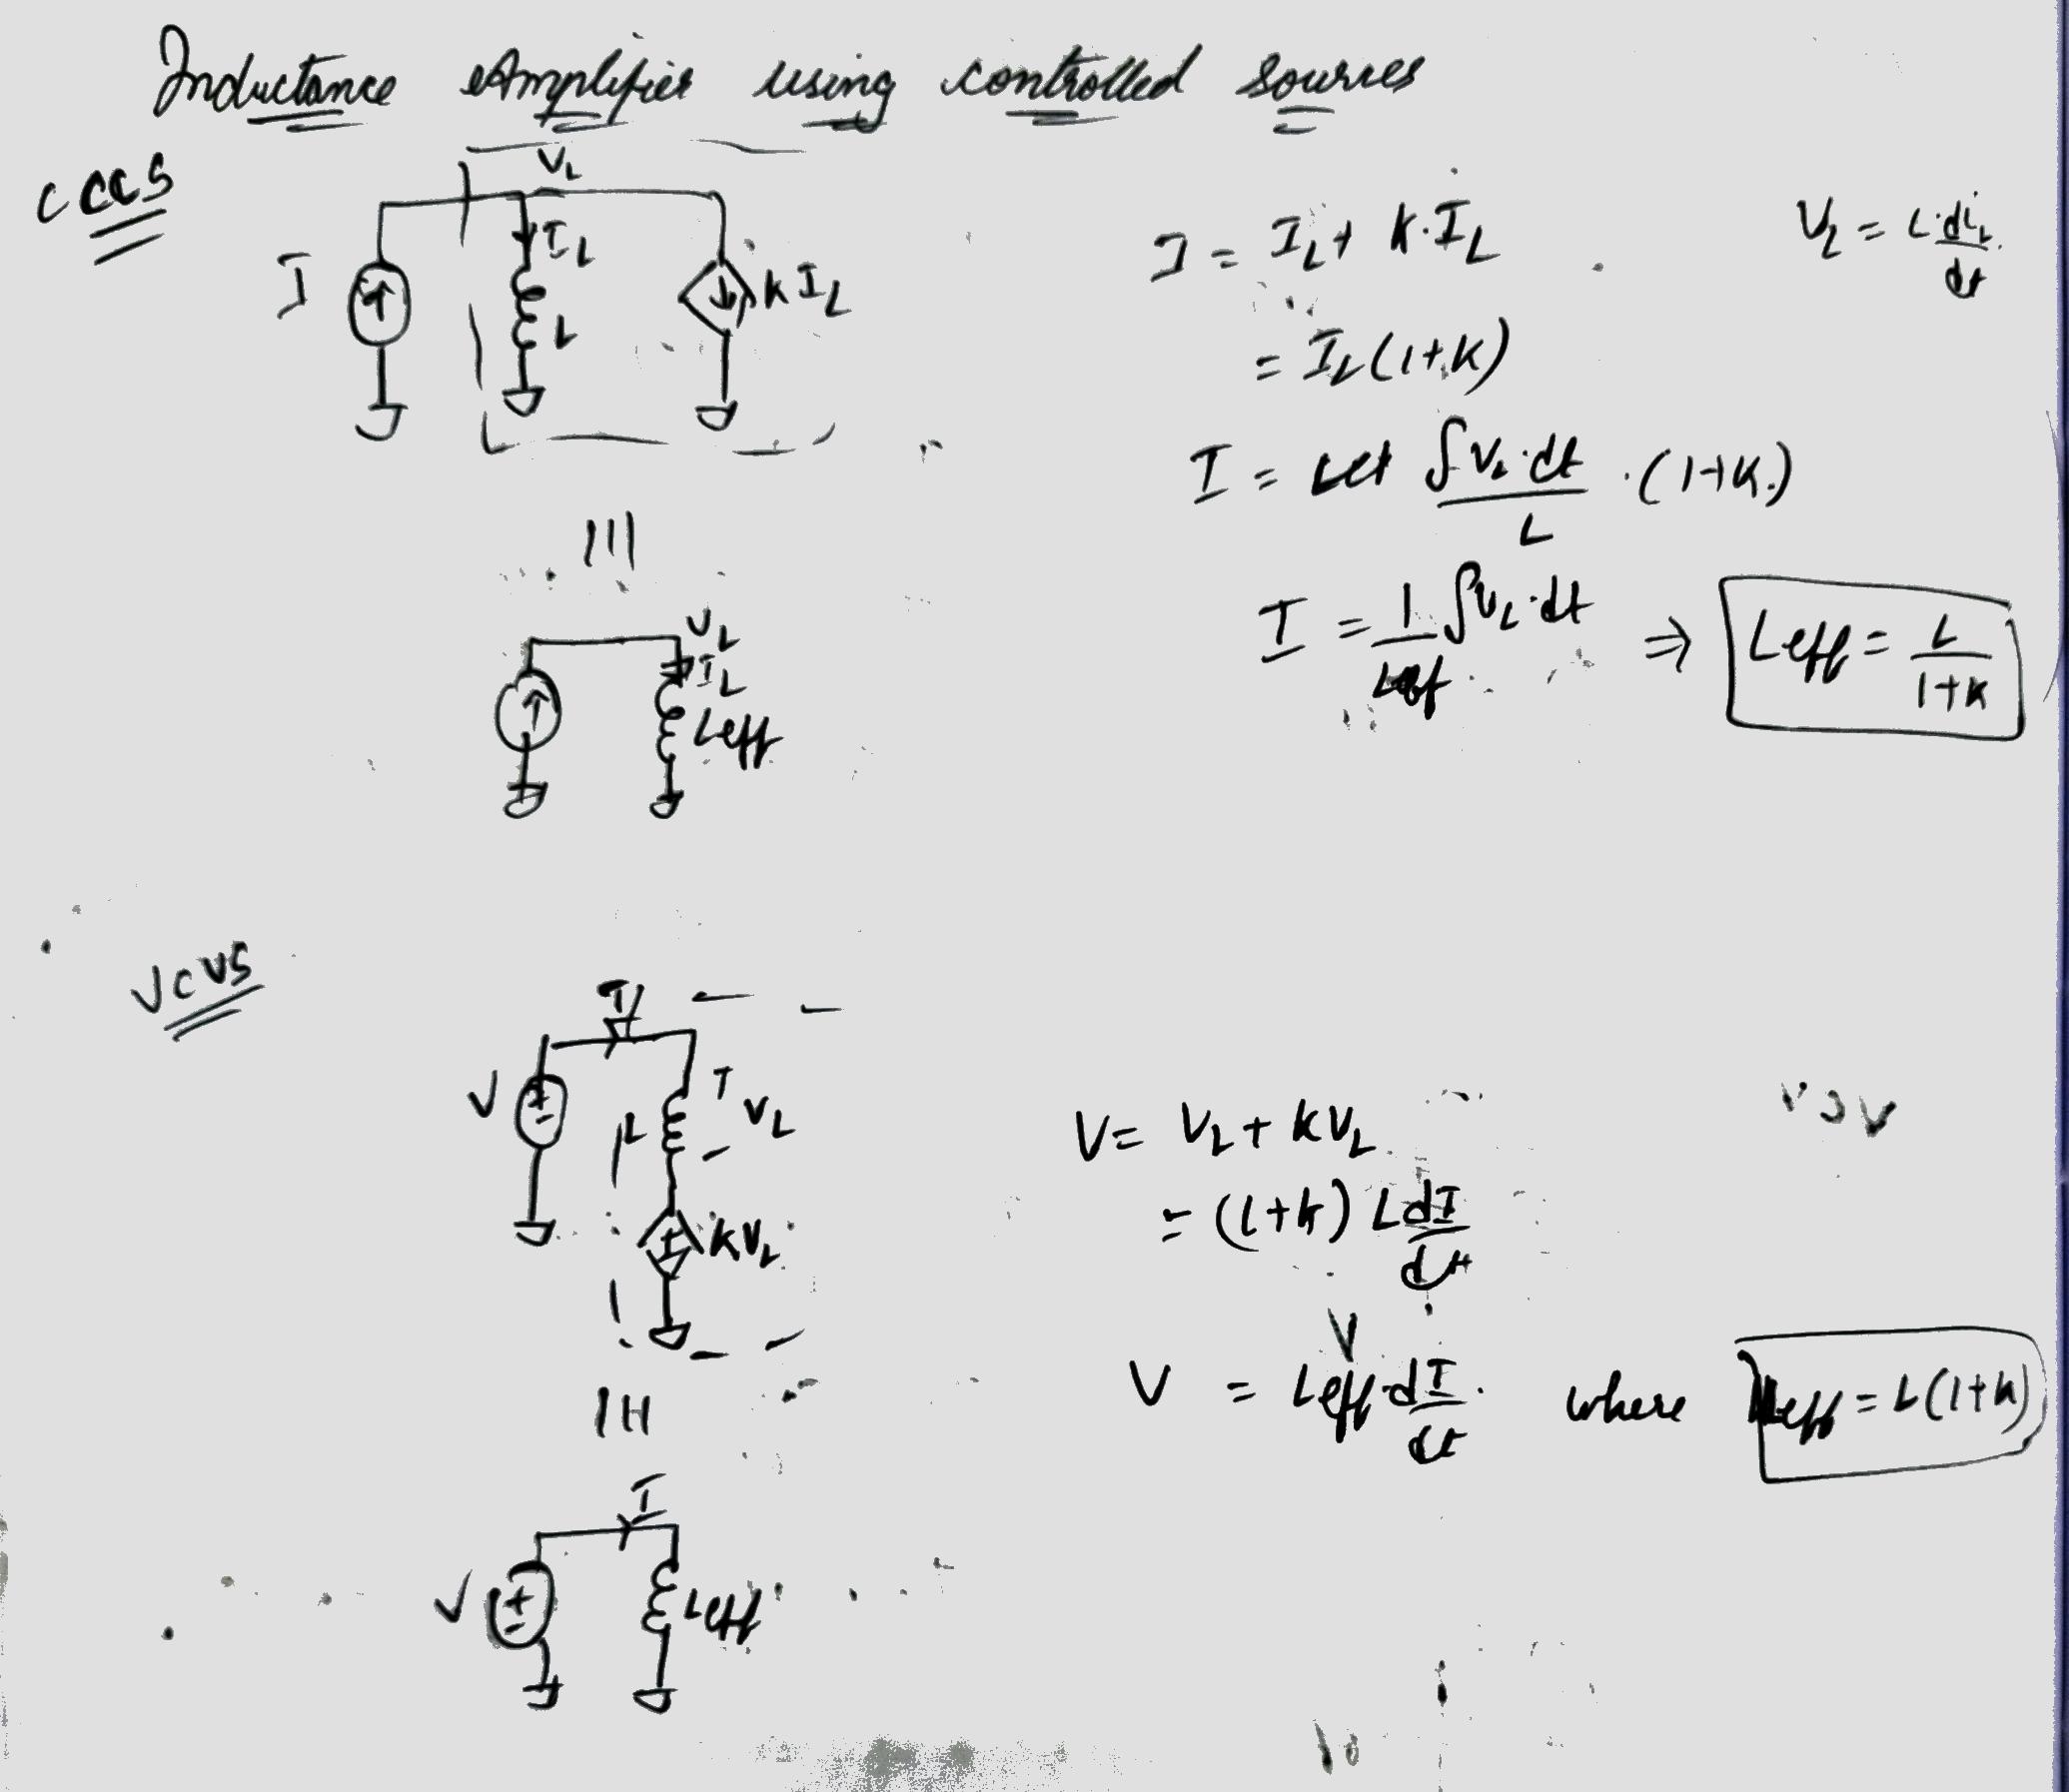 Inductance Amplifier using controlled sources
CCCS
V_L
I
I_L
L
K I_L
I = I_L + K·I_L
V_L = L·di_L/dt
= I_L (1+K)
I = ∫V_L·dt / L ·(1+K)
I = 1/Leff ∫V_L·dt ⇒ Leff = L/1+K
V_L
I_L
Leff
VCVS
I
V
L
V_L
KV_L
V = V_L + KV_L
= (1+K) L dI/dt
V = Leff·dI/dt where Leff = L(1+K)
I
V
Leff